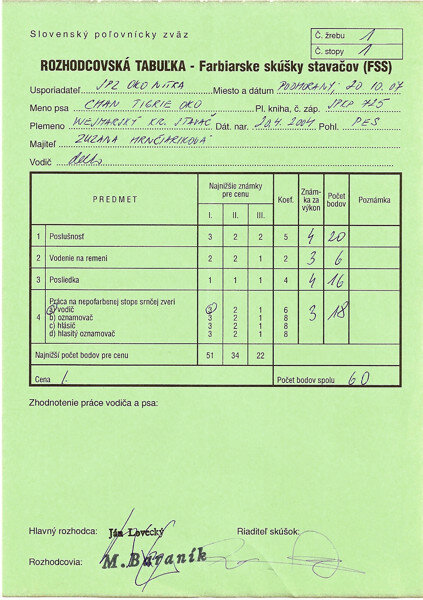 Slovenský poľovnícky zväz
Č. žrebu 1
Č. stopy 1
ROZHODCOVSKÁ TABUĽKA - Farbiarske skúšky stavačov (FSS)
Usporiadateľ JPZ OKO NITRA Miesto a dátum PODHORANY, 20.10.07
Meno psa CHAN TIGRIE OKO Pl. kniha, č. záp. SPKP 725
Plemeno WEJMARSKÝ KR. STAVAČ Dát. nar. 20.4.2004 Pohl. PES
Majiteľ ZUZANA HRNČIARIKOVÁ
Vodič detto
PREDMET Najnižšie známky pre cenu I. II. III. Koef. Známka za výkon Počet bodov Poznámka
1 Poslušnosť 3 2 2 5 4 20
2 Vodenie na remeni 2 2 1 2 3 6
3 Posliedka 1 1 1 4 4 16
4 Práca na nepofarbenej stope srnčej zveri
a) vodič 3 2 1 6 3 18
b) oznamovač 3 2 1 8
c) hlásič 3 2 1 8
d) hlasitý oznamovač 3 2 1 8
Najnižší počet bodov pre cenu 51 34 22
Cena 1. Počet bodov spolu 60
Zhodnotenie práce vodiča a psa:
Hlavný rozhodca: Ján Lovecký Riaditeľ skúšok:
Rozhodcovia: M. Baraník